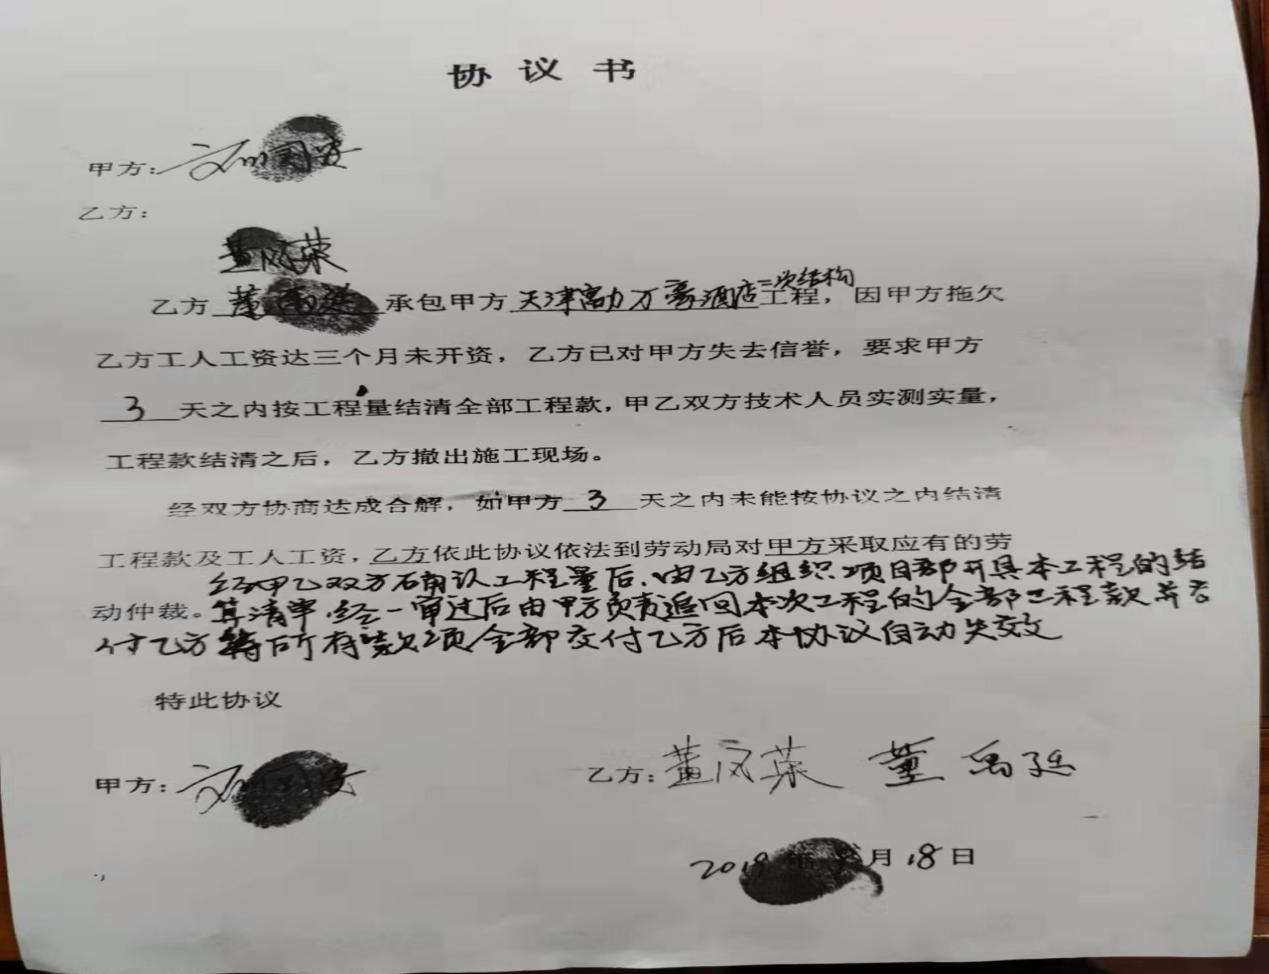 协议书
甲方:
乙方:
黄风荣
乙方 董禹延 承包甲方天津富力万豪酒店二次结构工程,因甲方拖欠
乙方工人工资达三个月未开资,乙方已对甲方失去信誉,要求甲方
3天之内按工程量结清全部工程款,甲乙双方技术人员实测实量,
工程款结清之后,乙方撤出施工现场。
经双方协商达成合解,如甲方3天之内未能按协议之内结清
工程款及工人工资,乙方依此协议依法到劳动局对甲方采取应有的劳
动仲裁。
经甲乙双方确认工程量后.由乙方组织项目部开具本工程的结
算清单.经一审过后由甲方负责追回本次工程的全部工程款并支
付乙方 待所有款项全部交付乙方后本协议自动失效
特此协议
甲方:
乙方:黄风荣 董禹延
2019年8月18日